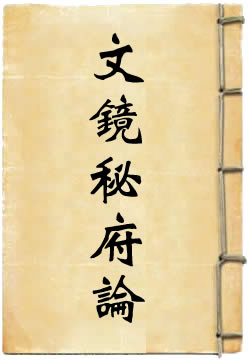 文鏡秘府論